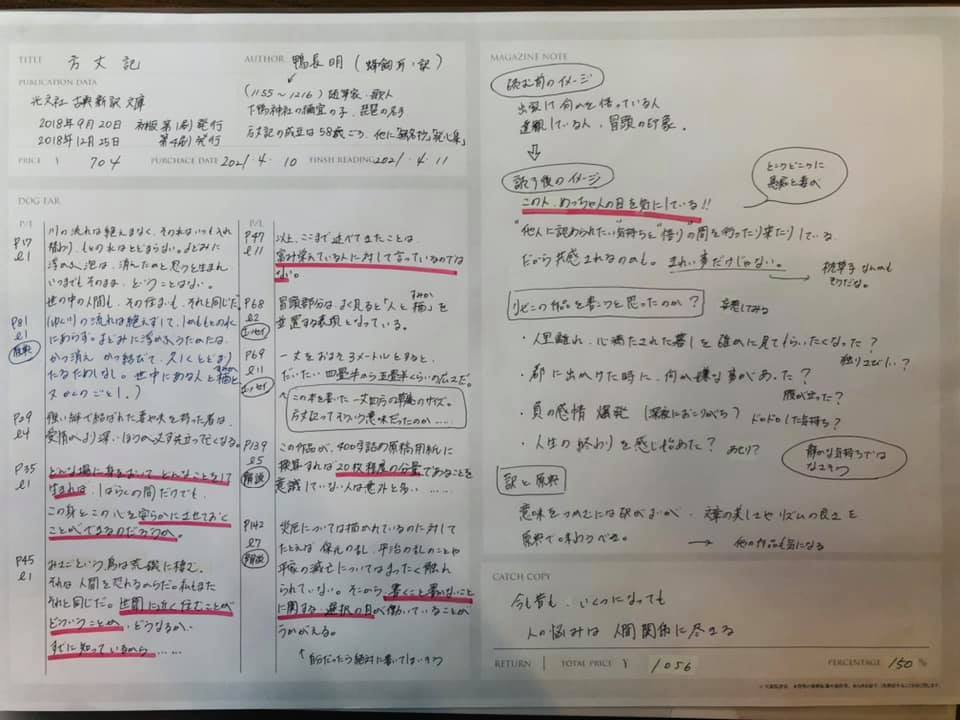 TITLE 方丈記
AUTHOR 鴨長明(蜂飼耳・訳)
PUBLICATION DATA
光文社 古典新訳文庫
2018年9月20日 初版第1刷発行
2018年12月25日 第4刷発行
(1155〜1216)随筆家・歌人
下鴨神社の禰宜の子、琵琶の名手
方丈記の成立は58歳ごろ、他に「無名抄」「発心集」
PRICE ¥ 704 PURCHACE DATE 2021・4・10 FINSH READING 2021・4・11
DOG EAR
P/L
P17 川の流れは絶えまなく、その水はいつも入れ
ℓ1 替わり、もとの水はとどまらない。よどみに
浮かぶ泡は、消えたかと思うと生まれ
いつまでもそのまま、ということはない。
世の中の人間も、その住まいも、それと同じだ。
P81 (ゆく川の流れは絶えずして、しかももとの水
ℓ1 にあらず。よどみに浮かぶうたかたは、
原典 かつ消え かつ結びて、久しくとどまり
たるためしなし。世中にある人と栖と
又かくのごとし。)
P29 強い絆で結ばれた妻や夫を持った者は、
ℓ4 愛情がより深いほうが必ず先立って亡くなる。
P35 どんな場に身をおいて どんなことをして
ℓ1 生きれば、しばらくの間だけでも、
この身とこの心を安らかにさせておく
ことができるのだろうか。
P45 みさごという鳥は荒磯に棲む。
ℓ1 それは人間を恐れるからだ。私もまた
それと同じだ。世間に近く住むことが
どういうことか、どうなるか、
すでに知っているから……
P/L
P47 以上、ここまで述べてきたことは、
ℓ11 富み栄えている人に対して言っているのでは
ない。
P68 冒頭部分は、よく見ると「人と栖」を
すみか
ℓ2 並置する表現となっている。
エッセイ
P69 一丈をおよそ3メートルとすると、
ℓ11 だいたい四畳半から五畳半くらいの広さだ。
エッセイ
この本を書いた一丈四方の草庵のサイズ。
方丈記ってそういう意味だったのか……
P139 この作品が、400字詰の原稿用紙に
ℓ5 換算すれば20枚程度の分量であることを
解説 意識していない人は意外と多い……
P142 災厄については描かれているのに対して
ℓ7 たとえば保元の乱、平治の乱のことや
解説 平家の滅亡についてはまったく触れ
られていない。そこから、書くこと書かないこと
に関する選択の目が働いていることが
うかがえる。
↑自分だったら絶対に書いてしまう
MAGAZINE NOTE
読む前のイメージ
出家して何かを悟っている人
達観している人、冒頭の印象。
⇩
読了後のイメージ
この人、めっちゃ人の目を気にしている!!
ところどころに
愚痴と毒が
"他人に認められたい"気持ちと"悟り"の間を行ったり来たりしている
だから共感されるのかも。きれい事だけじゃない。
→ 枕草子なんかも
そうだな。
なぜこの作品を書こうと思ったのか? 妄想してみる
・人里離れ、心満たされた暮しを誰かに見てもらいたくなった?
独りよがり…?
・都に出かけた時に、何か嫌な事があった?
腹が立った?
・負の感情 爆発 (深夜におこりがち) ドロドロした気持ち?
・人生の終わりを感じ始めた? あせり?
静かな気持ちでは
なさそう
訳と原典
意味をつかむには訳がよいが、文章の美しさやリズムの良さを
原典で味わうべき。 → 他の作品も気になる
CATCH COPY
今も昔も、いくつになっても
人の悩みは 人間関係に尽きる
RETURN TOTAL PRICE ¥ 1056 PERCENTAGE 150 %